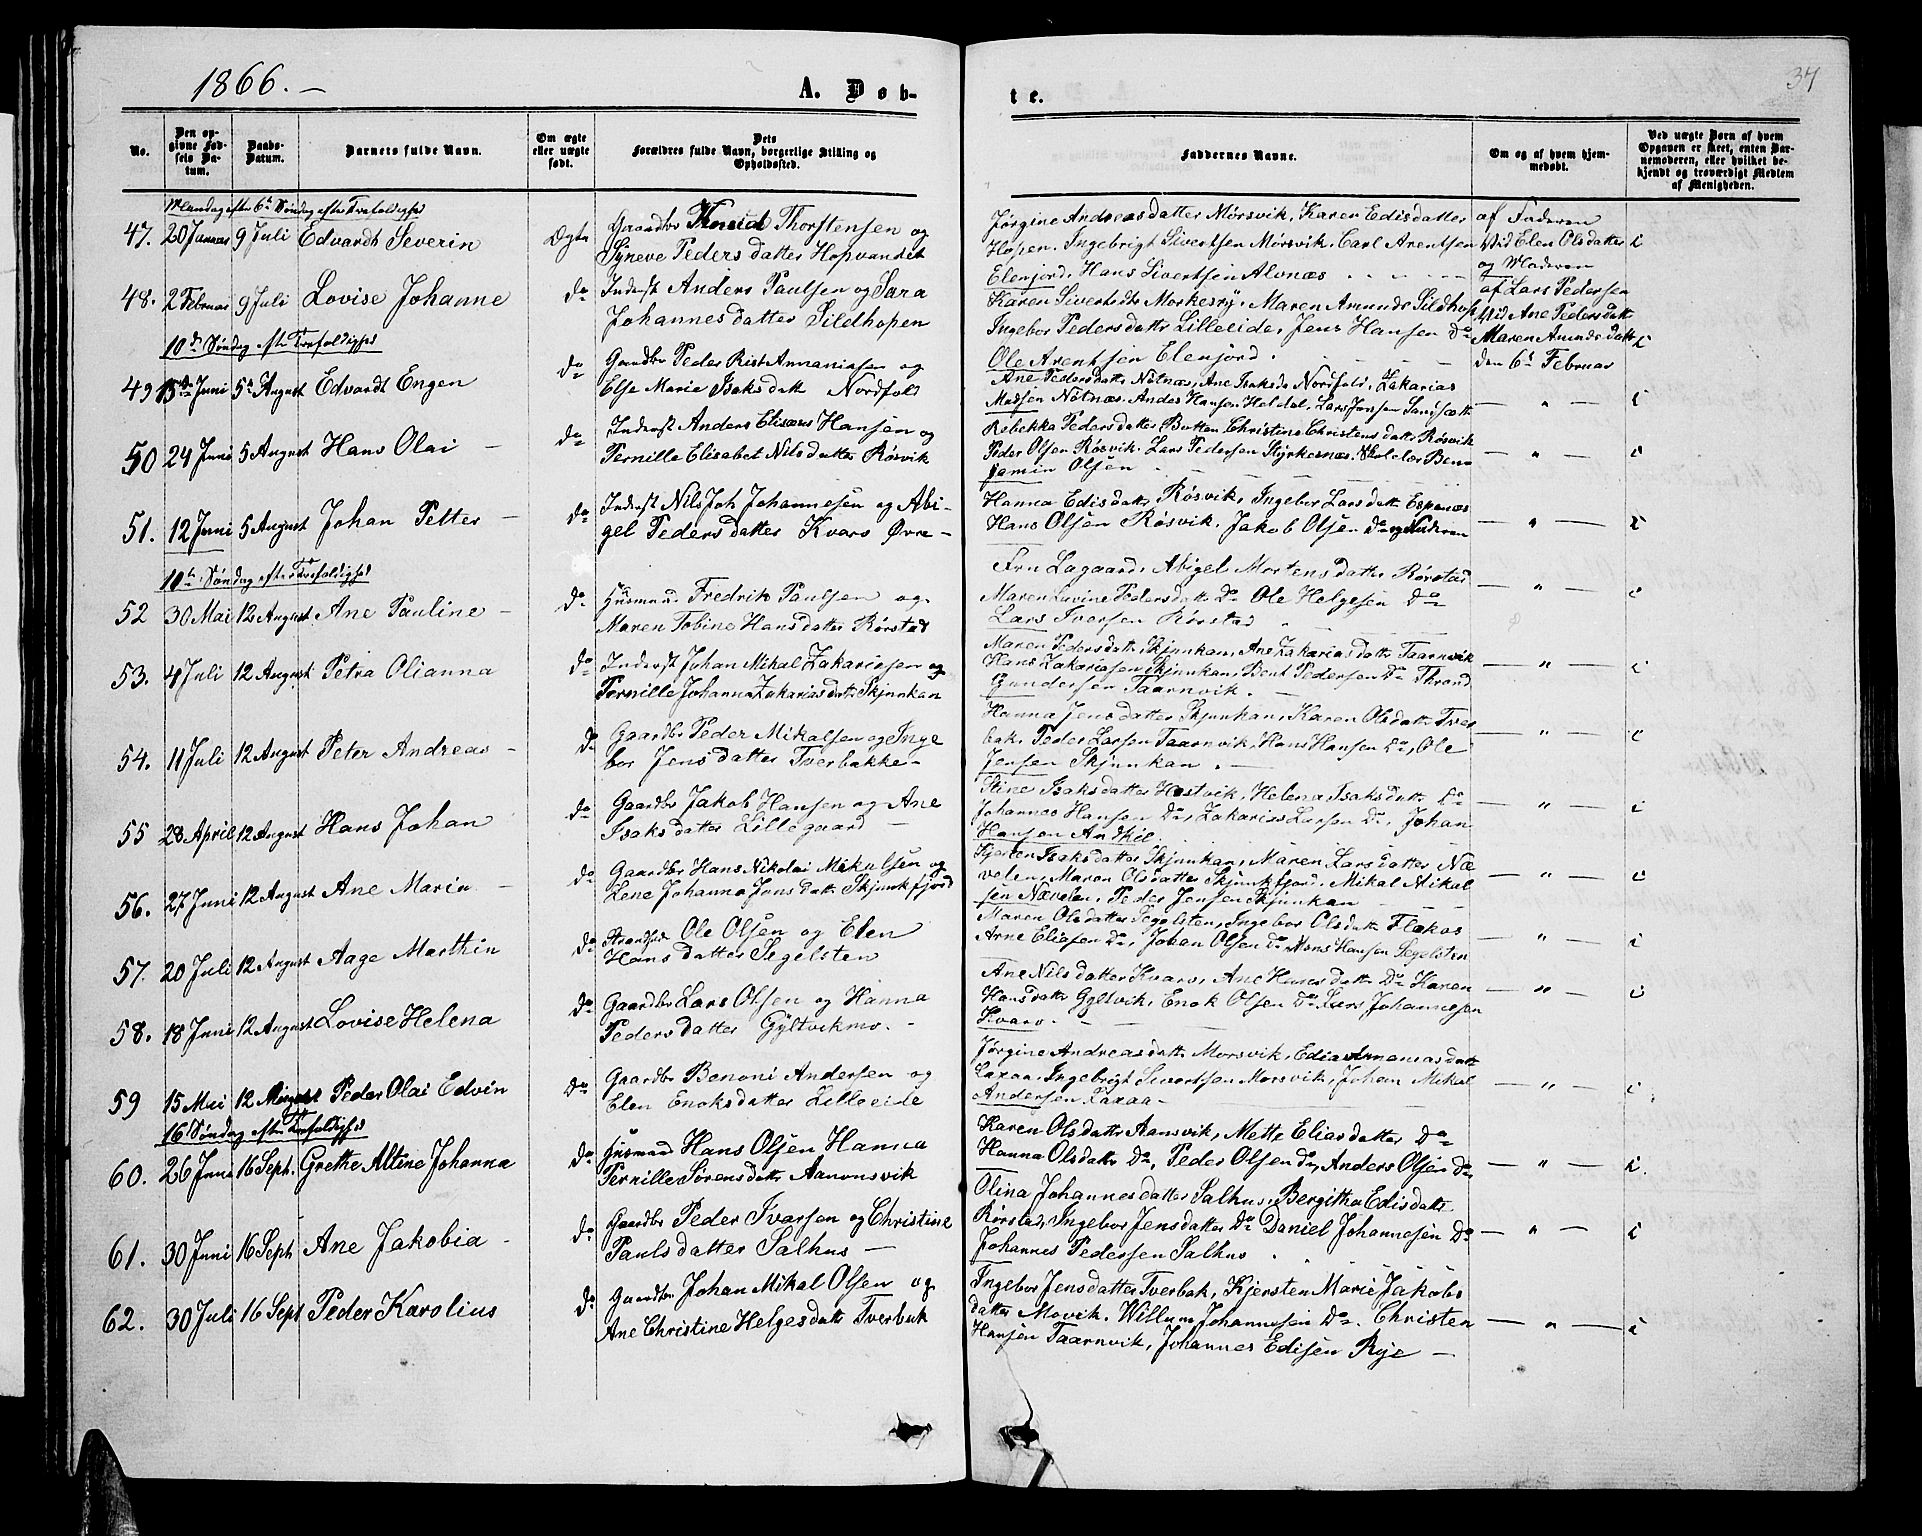 1866. –
A. Døb-
te.
37
No.
Den op-
givne Fød-
sels Da-
tum.
Daabs-
Datum.
Barnets fulde Navn.
Om ægte
eller uægte
født.
Dets
Forældres fulde Navn, borgerlige Stilling og
Opholdssted.
Faddernes Navne.
Om og af hvem hjem-
medøbt.
Ved uægte Børn af hvem
Opgaven er skeet, enten Bar-
nemoderen, eller hvilket be-
kjendt og troværdigt Medlem
af Menigheden.
Mandag efter 6te Søndag efter Trefoldighed
47. 20 Januar 9 Juli Edvardt Severin Ægte Gaardbr Knud Thorstensen og
Syneve Pedersdatter Hopvandet
Jørgine Andreasdatter Mørsvik, Karen Edisdatter
Hopen. Ingebrigt Sivertsen Mørsvik. Carl Arentsen
Elenjord. Hans Sivertsen Alvnæs
af Faderen
Vid Elen Olsdatter
og Moderen
48. 2 Februar 9 Juli Lovise Johanne do Inderst Anders Paulsen og Sara
Johannesdatter Sildhopen
Karen Sivertsdtr Morkesvj, Maren Amunds Sildhop
Ingebor Pedersdattr Lilleeide, Jens Hansen do
Ole Arentsen Elenjord.
af Lars Pedersen
Vid Ane Pedersdatt
Maren Amundsdatt
den 6te Februar
10de Søndag efter Trefoldighed
49 13de Juni 5te August Edvardt Engen do Gaardbr Peder Rist Annaniasen og
Else Marie Isaksdatt Nordfold
Ane Pedersdatt Nötnæs, Ane Isaksdr Nordfold, Zakarias
Madsen Nötnæs. Andes Hansen Heldal, Lars Jensen Sandsætt
50 24 Juni 5 August Hans Olai – do Inderst Anders Elisæus Hansen og
Pernille Elisabet Nilsdatter Røsvik
Rebekka Pedersdatter Botten Christine Christensdattr Røsvik
Peder Olsen Røsvik. Lars Pedersen Styrkesnæs. Ben-
jamin Olsen
51. 12 Juni 5 August Johan Petter – do Inderst Nils Joh Johannesen og Abi-
gel Pedersdatter Kvarv Øvre –
Hanna Edisdattr Røsvik, Ingebor Larsdattr Espenæs
Hans Olsen Røsvik. Jakob Olsen do og Faderen
10de Søndag efter Trefoldighed
52 30 Mai 12 August Ane Pauline – do Husmand Fredrik Paulsen og
Maren Tobine Hansdatter Rørstad
Fru Lagaard, Abigel Mortensdatter Rørstad
Maren Lovine Pedersdattr do Ole Helgesen do
Lars Iversen Rørstad
53. 4 Juli 12 August Petra Olianna do Inderst Johan Mikal Zakariasen og
Pernille Johanna Zakariasdattr Skjunkan
Maren Pedersdattr Skjunkan, Ane Zakariasdatter Taarnvik
Hans Zakariasen Skjunkan, Bent Pedersen do Thrond
Gundersen Taarnvik.
54. 11 Juli 12 August Peter Andreas – do Gaardbr Peder Mikalsen og Inge
bor Jensdatter Tverbakke –
Hanna Jensdatter Skjunkan, Karen Olsdattr Tver
bak, Peder Larsen Taarnvik, Hans Hansen do, Ole
Jensen Skjunkan.
55 28 April 12 August Hans Johan do Gaardbr Jakob Hansen og Ane
Isaksdatter Lillegaard –
Stine Isaksdatter Hestvik, Helena Isaksdattr do
Johannes Hansen do, Zakarias Larsen do, Johan
Hansen Andkil.
56. 27 Juni 12 August Ane Maria – do Gaardbr Hans Nikolai Mikalsen og
Lene Johanna Jensdattr Skjunkfjord
Kjersten Isaksdatter Skjunkan, Maren Larsdatter Næ
velen, Maren Olsdatter Skjunkfjord. Mikal Mikal
sen Nævelen, Peder Jensen Skjunkan
57. 20 Juli 12 August Aage Marthin do Strandsid Ole Olsen og Elen
Hansdatter Segelsten
Maren Olsdatter Segelsten, Ingebor Olsdattr Flekos
Arne Eliasen do, Johan Olsen do, Mons Hansen Segelsten
58. 18 Juni 12 August Lovise Helena do Gaardbr Lars Olsen og Hanna
Pedersdatter Gyltvikmo. –
Ane Nilsdatter Kvarv, Ane Hansdattr do Karen
Hansdattr Gyltvik, Enok Olsen do Lars Johannesen
Kvarv. –
59 15 Mai 12 August Peder Olai Edvin do Gaardbr Benoni Andersen og
Elen Enoksdatter Lilleeide
Jørgine Andreasdattr Morsvik, Edia Ananiasdatt
Laxaa, Ingebrigt Sivertsen Morsvik, Johan Mikal
Andersen Laxaa –
16 Søndag efter Trefoldighed
60. 26 Juni 16 Sept. Grethe Altine Johanna do Husmand Hans Olsen Hanna
Pernille Sørensdattr Aanonsvik
Karen Olsdatter Aansvik, Mette Eliasdatter do
Hanna Olsdattr do, Peder Olsen do, Anders Olsen do
61. 30 Juni 16 Sept Ane Jakobia – do Gaardbr Peder Ivarsen og Christine
Paulsdatter Salhus –
Olina Johannesdatter Salhus, Bergitha Edisdatt
Rørstad, Ingebor Jensdatter do Daniel Johannesen do
Johannes Pedersen Salhus
62. 30 Juli 16 Sept Peder Karolius do Gaardbr Johan Mikal Olsen og
Ane Christine Helgesdatt Tverbak
Ingebor Jensdatter Tverbak, Kjersten Marie Jakobs
datter Movik, Willum Johannesen do. Christen
Hansen Taarnvik, Johannes Edisen Rye –